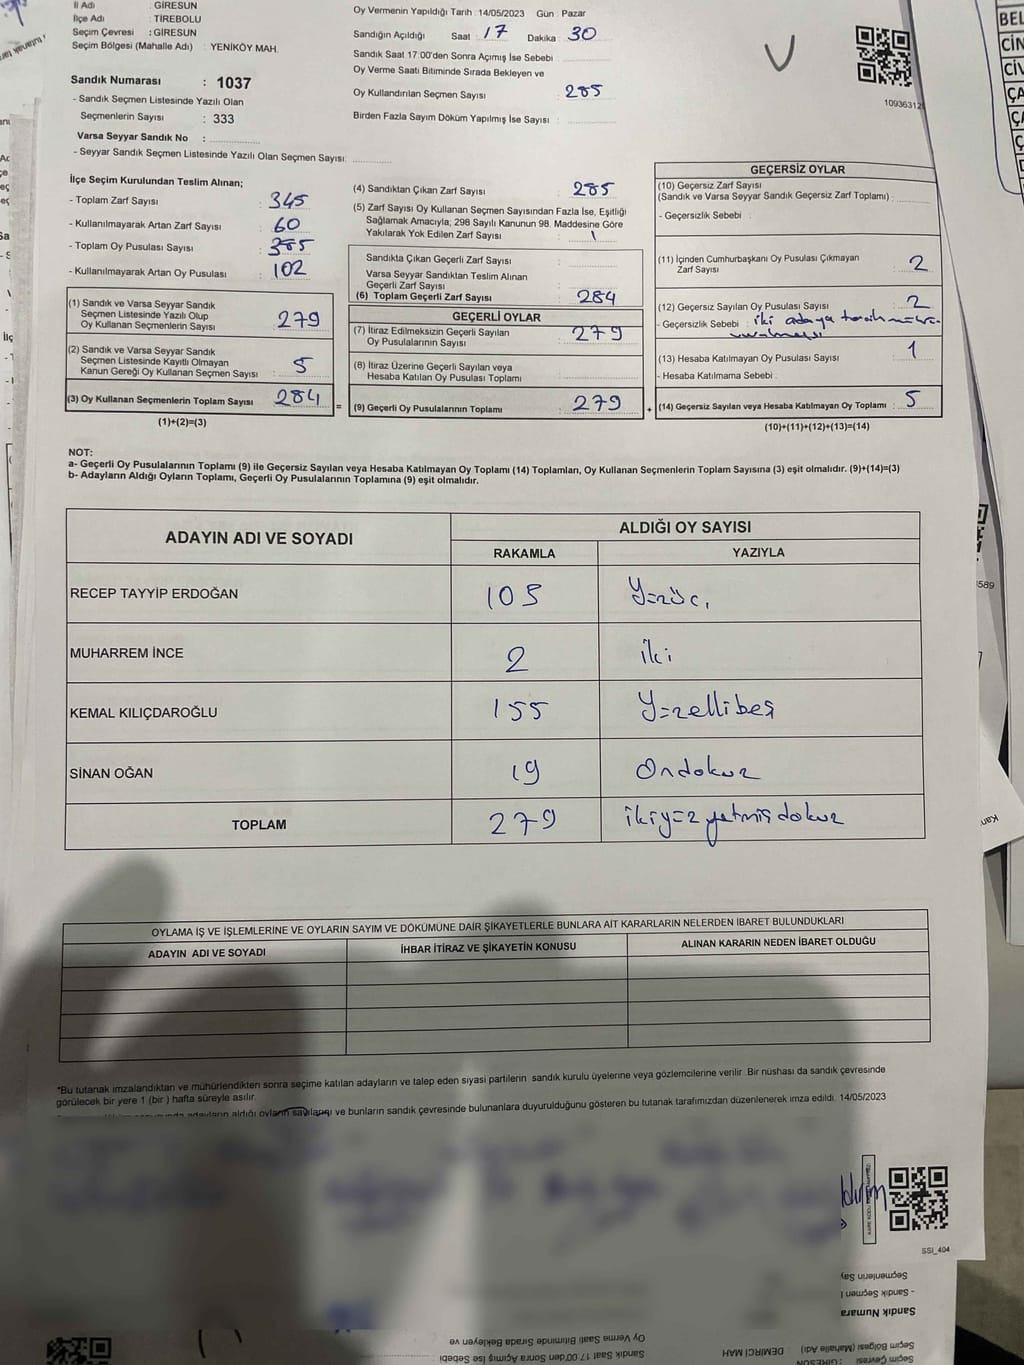 İl Adı : GİRESUN
İlçe Adı : TİREBOLU
Seçim Çevresi : GİRESUN
Seçim Bölgesi (Mahalle Adı) : YENİKÖY MAH.
Sandık Numarası : 1037
- Sandık Seçmen Listesinde Yazılı Olan
Seçmenlerin Sayısı : 333
Varsa Seyyar Sandık No :
- Seyyar Sandık Seçmen Listesinde Yazılı Olan Seçmen Sayısı:
Oy Vermenin Yapıldığı Tarih : 14/05/2023 Gün : Pazar
Sandığın Açıldığı Saat 17 Dakika : 30
Sandık Saat 17:00'den Sonra Açımış İse Sebebi :
Oy Verme Saati Bitiminde Sırada Bekleyen ve
Oy Kullandırılan Seçmen Sayısı : 285
Birden Fazla Sayım Döküm Yapılmış İse Sayısı :
1093631
İlçe Seçim Kurulundan Teslim Alınan;
- Toplam Zarf Sayısı : 345
- Kullanılmayarak Artan Zarf Sayısı : 60
- Toplam Oy Pusulası Sayısı : 385
- Kullanılmayarak Artan Oy Pusulası : 102
(1) Sandık ve Varsa Seyyar Sandık
Seçmen Listesinde Yazılı Olup
Oy Kullanan Seçmenlerin Sayısı : 279
(2) Sandık ve Varsa Seyyar Sandık
Seçmen Listesinde Kayıtlı Olmayan
Kanun Gereği Oy Kullanan Seçmen Sayısı : 5
(3) Oy Kullanan Seçmenlerin Toplam Sayısı : 284 =
(1)+(2)=(3)
(4) Sandıktan Çıkan Zarf Sayısı : 285
(5) Zarf Sayısı Oy Kullanan Seçmen Sayısından Fazla İse, Eşitliği
Sağlamak Amacıyla, 298 Sayılı Kanunun 98. Maddesine Göre
Yakılarak Yok Edilen Zarf Sayısı : 1
Sandıkta Çıkan Geçerli Zarf Sayısı :
Varsa Seyyar Sandıktan Teslim Alınan
Geçerli Zarf Sayısı :
(6) Toplam Geçerli Zarf Sayısı : 284
GEÇERLİ OYLAR
(7) İtiraz Edilmeksizin Geçerli Sayılan
Oy Pusulalarının Sayısı : 279
(8) İtiraz Üzerine Geçerli Sayılan veya
Hesaba Katılan Oy Pusulası Toplamı :
(9) Geçerli Oy Pusulalarının Toplamı : 279 +
GEÇERSİZ OYLAR
(10) Geçersiz Zarf Sayısı
(Sandık ve Varsa Seyyar Sandık Geçersiz Zarf Toplamı) :
- Geçersizlik Sebebi :
(11) İçinden Cumhurbaşkanı Oy Pusulası Çıkmayan
Zarf Sayısı : 2
(12) Geçersiz Sayılan Oy Pusulası Sayısı : 2
- Geçersizlik Sebebi : iki adaya tercih
(13) Hesaba Katılmayan Oy Pusulası Sayısı : 1
- Hesaba Katılmama Sebebi :
(14) Geçersiz Sayılan veya Hesaba Katılmayan Oy Toplamı : 5
(10)+(11)+(12)+(13)=(14)
NOT:
a- Geçerli Oy Pusulalarının Toplamı (9) ile Geçersiz Sayılan veya Hesaba Katılmayan Oy Toplamı (14) Toplamları, Oy Kullanan Seçmenlerin Toplam Sayısına (3) eşit olmalıdır. (9)+(14)=(3)
b- Adayların Aldığı Oyların Toplamı, Geçerli Oy Pusulalarının Toplamına (9) eşit olmalıdır.
ADAYIN ADI VE SOYADI ALDIĞI OY SAYISI
RAKAMLA YAZIYLA
RECEP TAYYİP ERDOĞAN 103 Yüzüç
MUHARREM İNCE 2 İki
KEMAL KILIÇDAROĞLU 155 Yüzellibeş
SİNAN OĞAN 19 Ondokuz
TOPLAM 279 ikiyüzyetmişdokuz
OYLAMA İŞ VE İŞLEMLERİNE VE OYLARIN SAYIM VE DÖKÜMÜNE DAİR ŞİKAYETLERLE BUNLARA AİT KARARLARIN NELERDEN İBARET BULUNDUKLARI
ADAYIN ADI VE SOYADI İHBAR İTİRAZ VE ŞİKAYETİN KONUSU ALINAN KARARIN NEDEN İBARET OLDUĞU
*Bu tutanak imzalandıktan ve mühürlendikten sonra seçime katılan adayların ve talep eden siyasi partilerin sandık kurulu üyelerine veya gözlemcilerine verilir. Bir nüshası da sandık çevresinde
görülecek bir yere 1 (bir ) hafta süreyle asılır.
adayların aldığı oyların sayılarını ve bunların sandık çevresinde bulunanlara duyurulduğunu gösteren bu tutanak tarafımızdan düzenlenerek imza edildi. 14/05/2023
SSI_404
Seçmenlerin Say
- Sandık Seçmen
Sandık Numara
Seçim Bölgesi (Mahalle Adı) : DEMİRCİ MAH
Seçim Çevresi : GİRESUN
Oy Verme Saati Bitiminde Sırada Bekleyen ve
Sandık Saat 17:00'den Sonra Açımış İse Sebebi